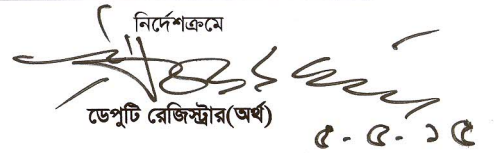 নির্দেশক্রমে
ডেপুটি রেজিস্ট্রার(অর্থ)
৫-৫-১৫